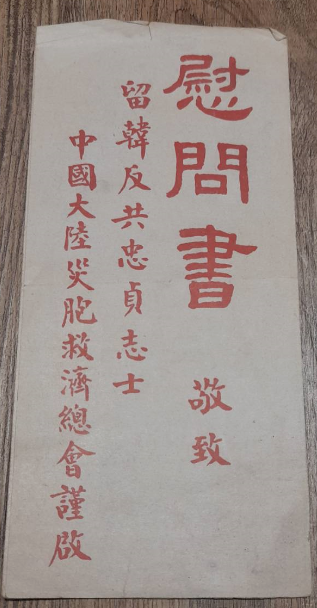 慰問書 敬致
留韓反共忠貞志士
中國大陸災胞救濟總會謹啟